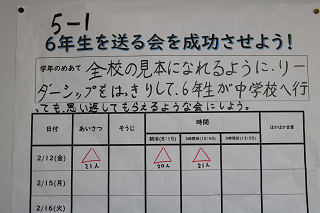 5-1
6年生を送る会を成功させよう!
学年のめあて 全校の見本になれるように、リー
ダーシップをはっきりして、6年生が中学校へ行
っても、思い返してもらえるような会にしよう。
日付 あいさつ そうじ 時間 ぽかぽか言葉
朝活(8:15) 3時間目(10:40) 5時間目(13:55)
2/12(金) 21人 20人 21人
2/15(月)
2/16(火)